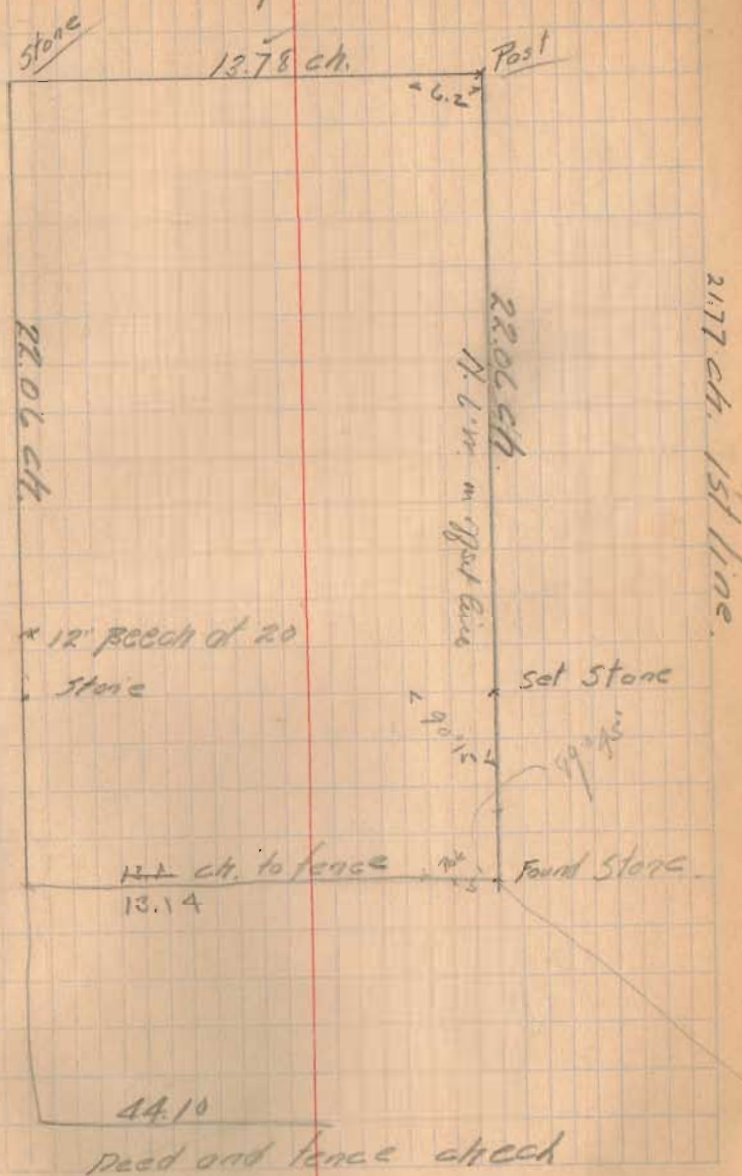 Stone
13.78 ch.
Post
6.2
22.06 ch.
22.06 ch.
21.77 ch. 1st line.
12" Beech at 20
Stone
Set Stone
90° 15'
89° 45'
ch. to fence
13.14
Found Stone.
44.10
Deed and fence check